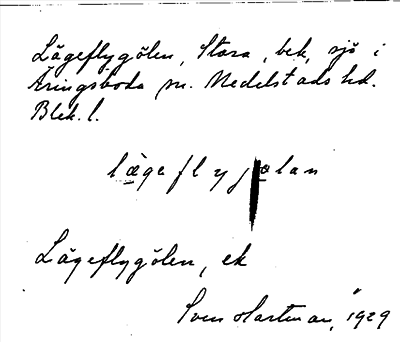 Lågeflygölen, Stora, bek, sjö i
Åringsboda sn. Medelstads hd.
Blek. l.
lægeflygølan
Lågeflygölen, ek
Sven Hartman, 1929